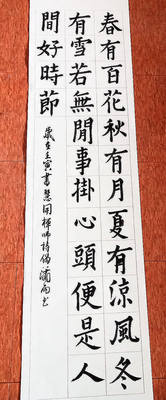 春有百花秋有月夏有涼風冬
有雪若無閒事掛心頭便是人
間好時節
歲在壬寅書慧開禪師詩偈